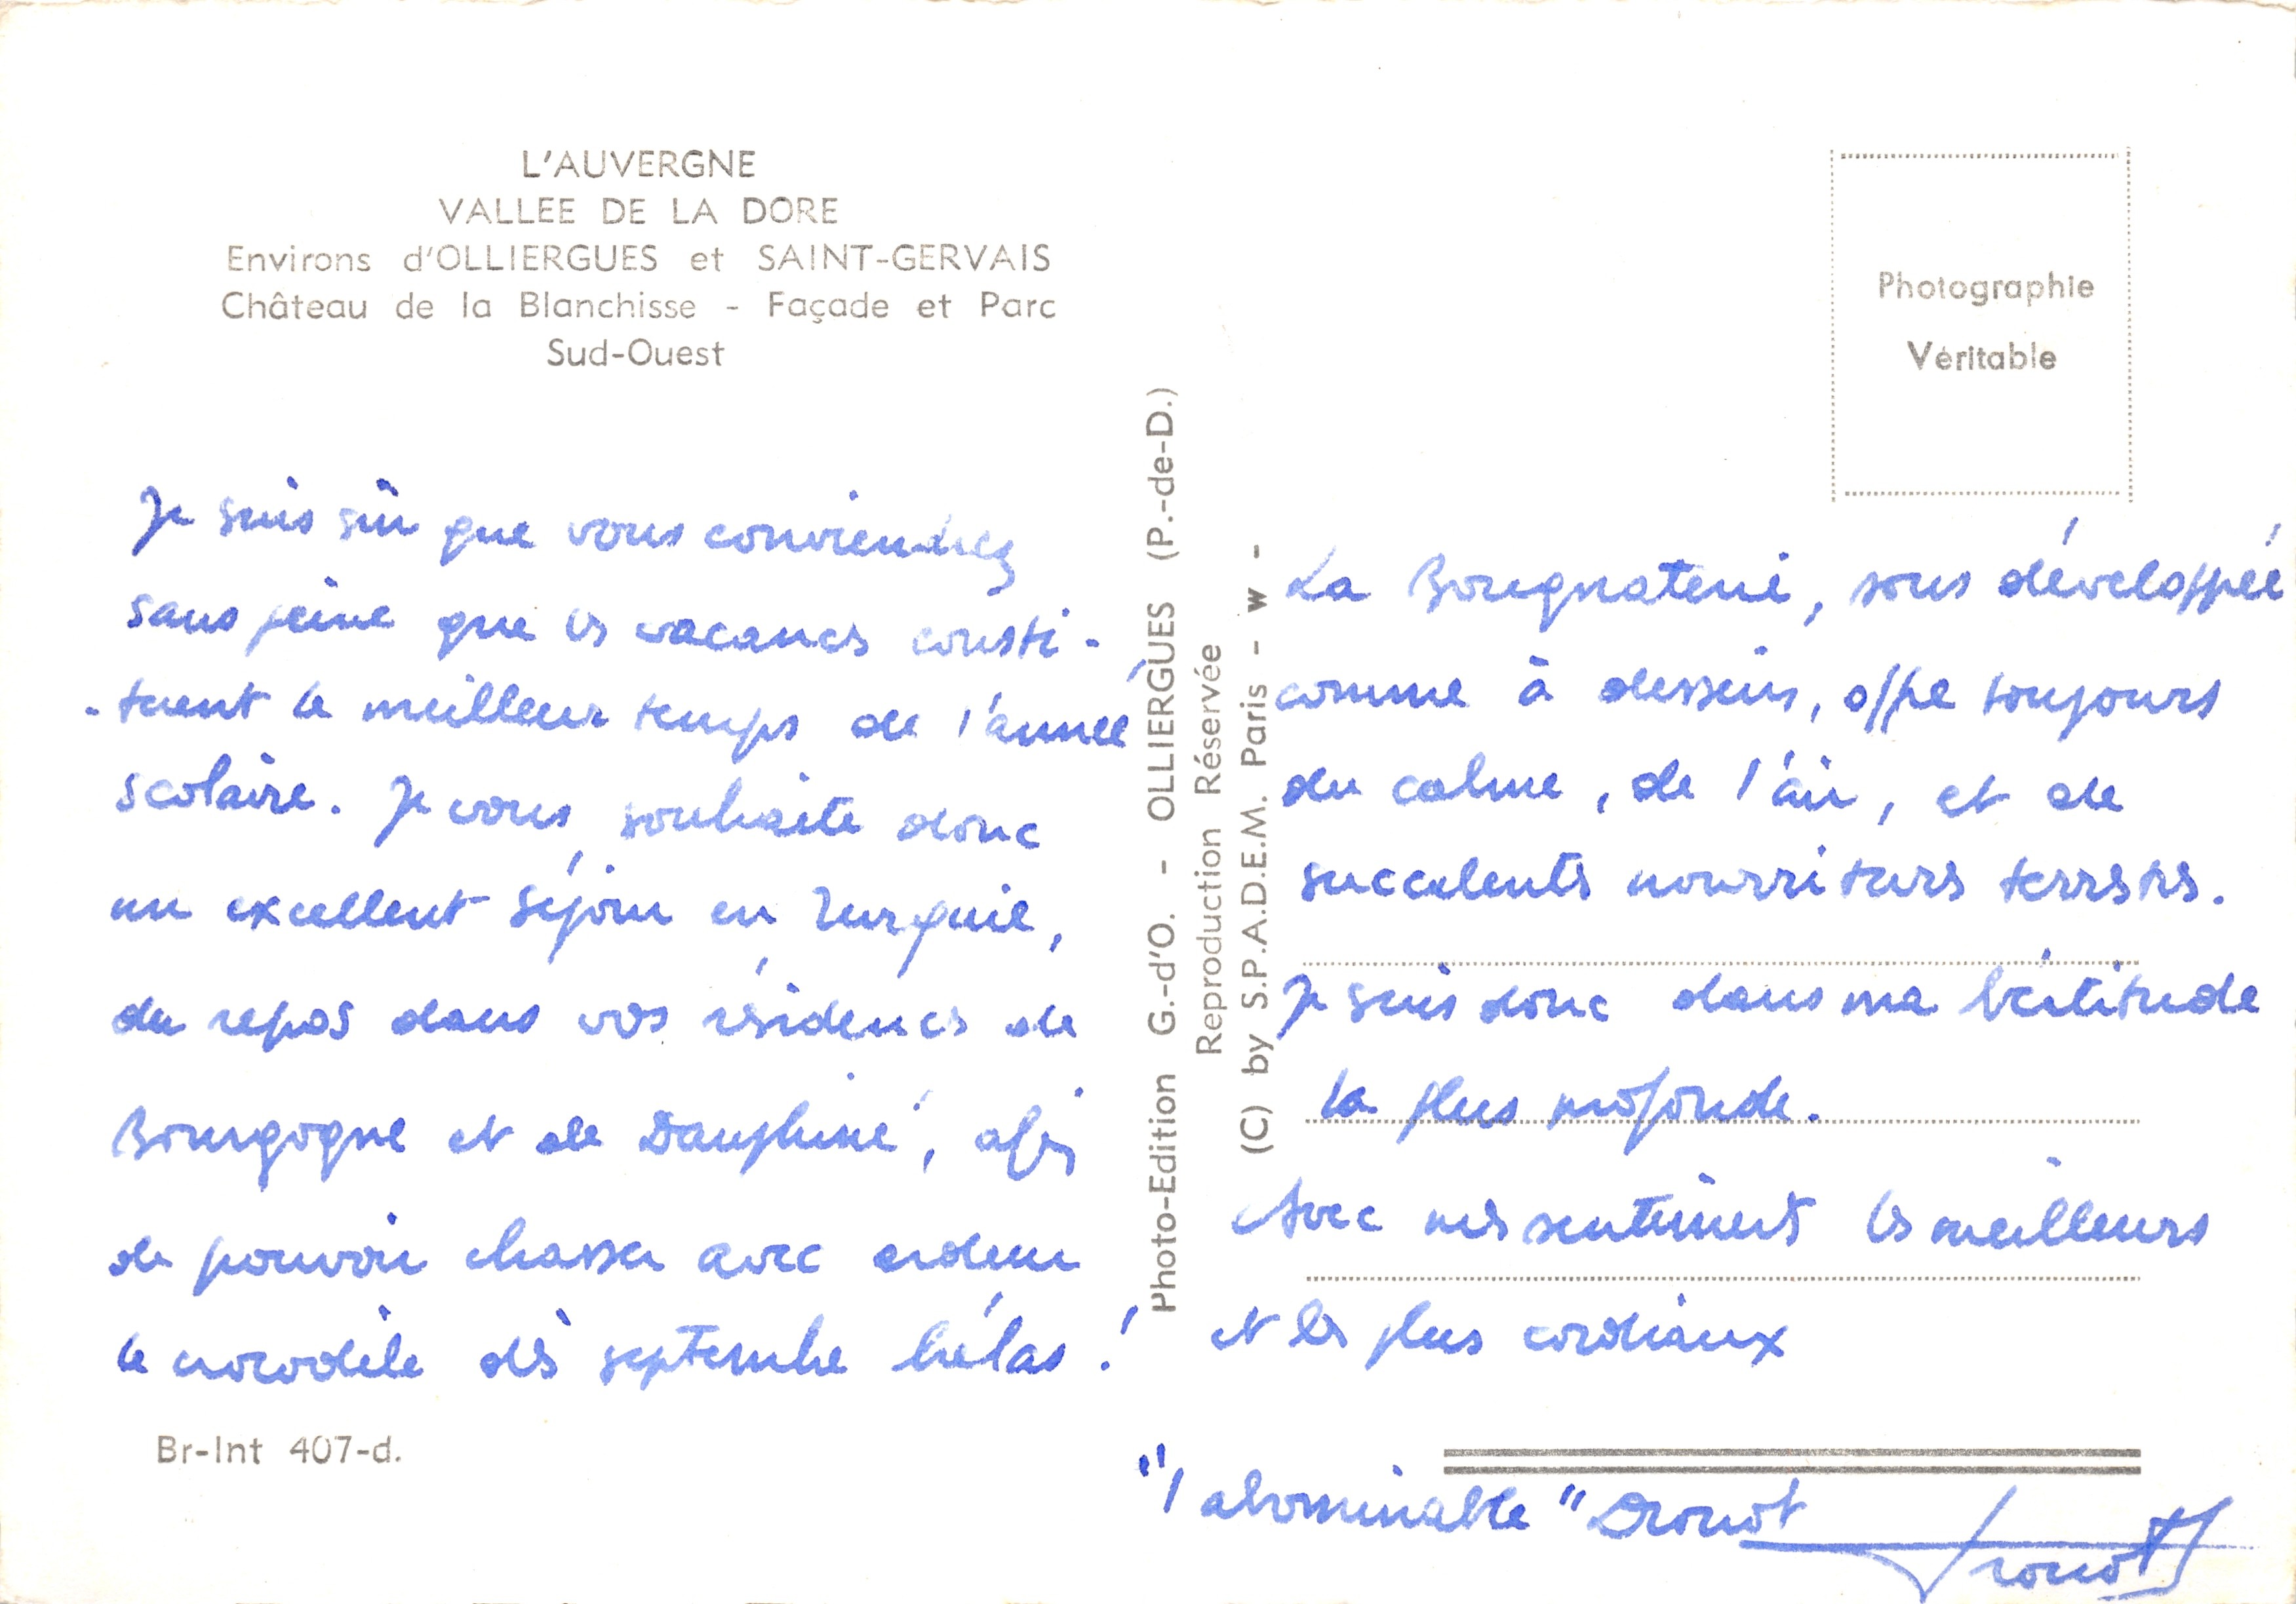 L'AUVERGNE
VALLEE DE LA DORE
Environs d'OLLIERGUES et SAINT-GERVAIS
Château de la Blanchisse - Façade et Parc
Sud-Ouest
Je suis sûr que vous conviendrez
sans peine que les vacances consti-
-tuent le meilleur temps de l'année
scolaire. Je vous souhaite donc
un excellent séjour en Turquie,
du repos dans vos résidences de
Bourgogne et de Dauphiné, afin
de pouvoir chasser avec ardeur
le crocodile dès septembre hélas !
Br-Int 407-d.
Photo-Edition G.-d'O. - OLLIERGUES (P.-de-D.)
Reproduction Réservée
(C) by S.P.A.D.E.M. Paris - w -
Photographie
Véritable
La Bougnaterie, sous développée
comme à dessein, offre toujours
du calme, de l'air, et de
succulentes nourritures terrestres.
Je suis donc dans ma béatitude
la plus profonde.
Avec mes sentiments les meilleurs
et les plus cordiaux
"l'abominable" Drouot
Drouot